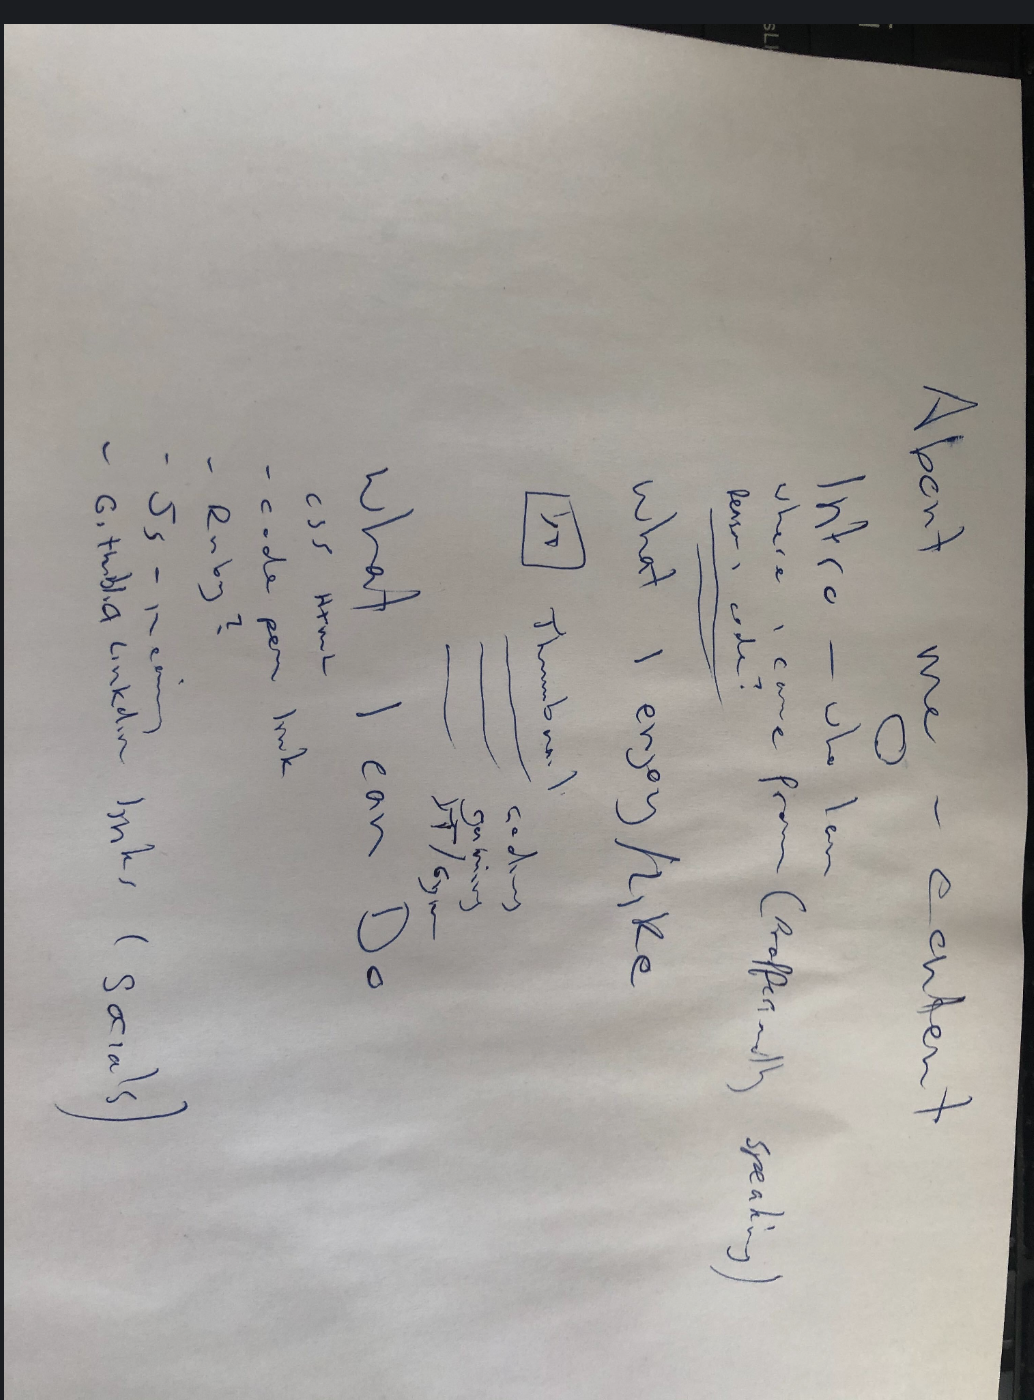 About me - content
Intro - who I am
where i came from (Proffesionally speaking)
Reason i code?
What I enjoy/Like
Thumbnail
coding
gaming
/Gym
What I can Do
CSS HTML
- code pen link
- Ruby?
- JS -
- Github Linkdin links (Socials)